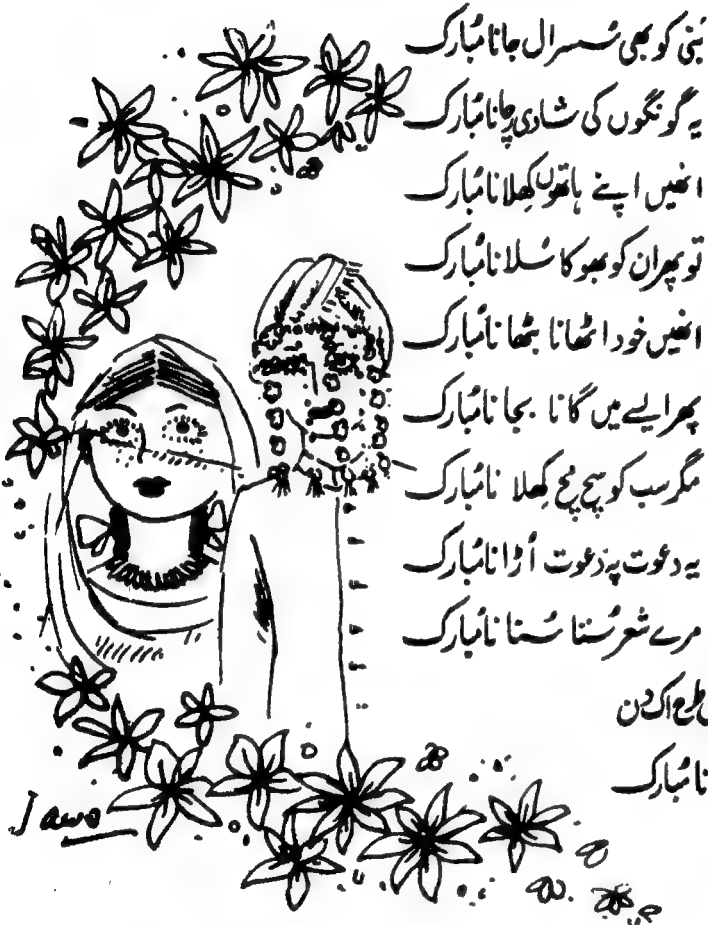 بُنی کو بھی سُسرال جانا مُبارک
یہ گونگوں کی شادی رچانا مُبارک
انھیں اپنے ہاتھوں کِھلانا مُبارک
تو پھر ان کو بھوکا سُلانا مُبارک
انھیں خود اٹھانا بٹھانا مُبارک
پھر ایسے میں گانا بجانا مُبارک
مگر سب کو سچ مچ کِھلانا مُبارک
یہ دعوت پہ دعوت اُڑانا مُبارک
مرے شعر سُننا سُنانا مُبارک
طرح اک دن
نا مُبارک